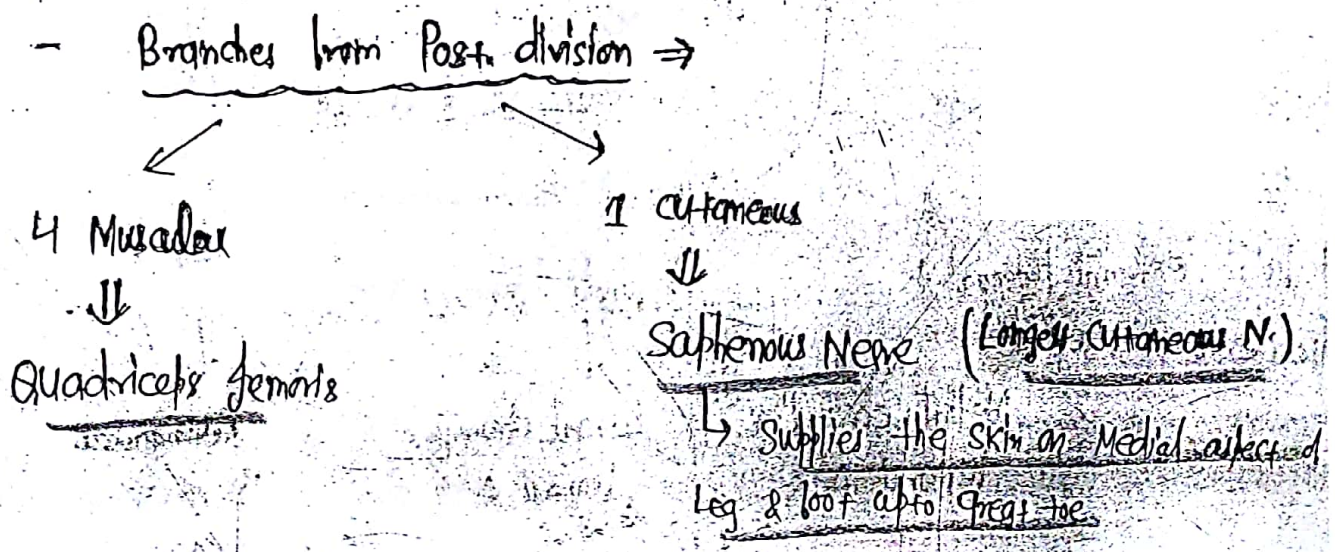 - Branches from Post. division ⇒
4 Muscular
1 cutaneous
Quadriceps femoris
Saphenous Nerve (Longest Cutaneous N.)
↳ Supplies the skin on Medial aspect of
Leg & foot upto great toe